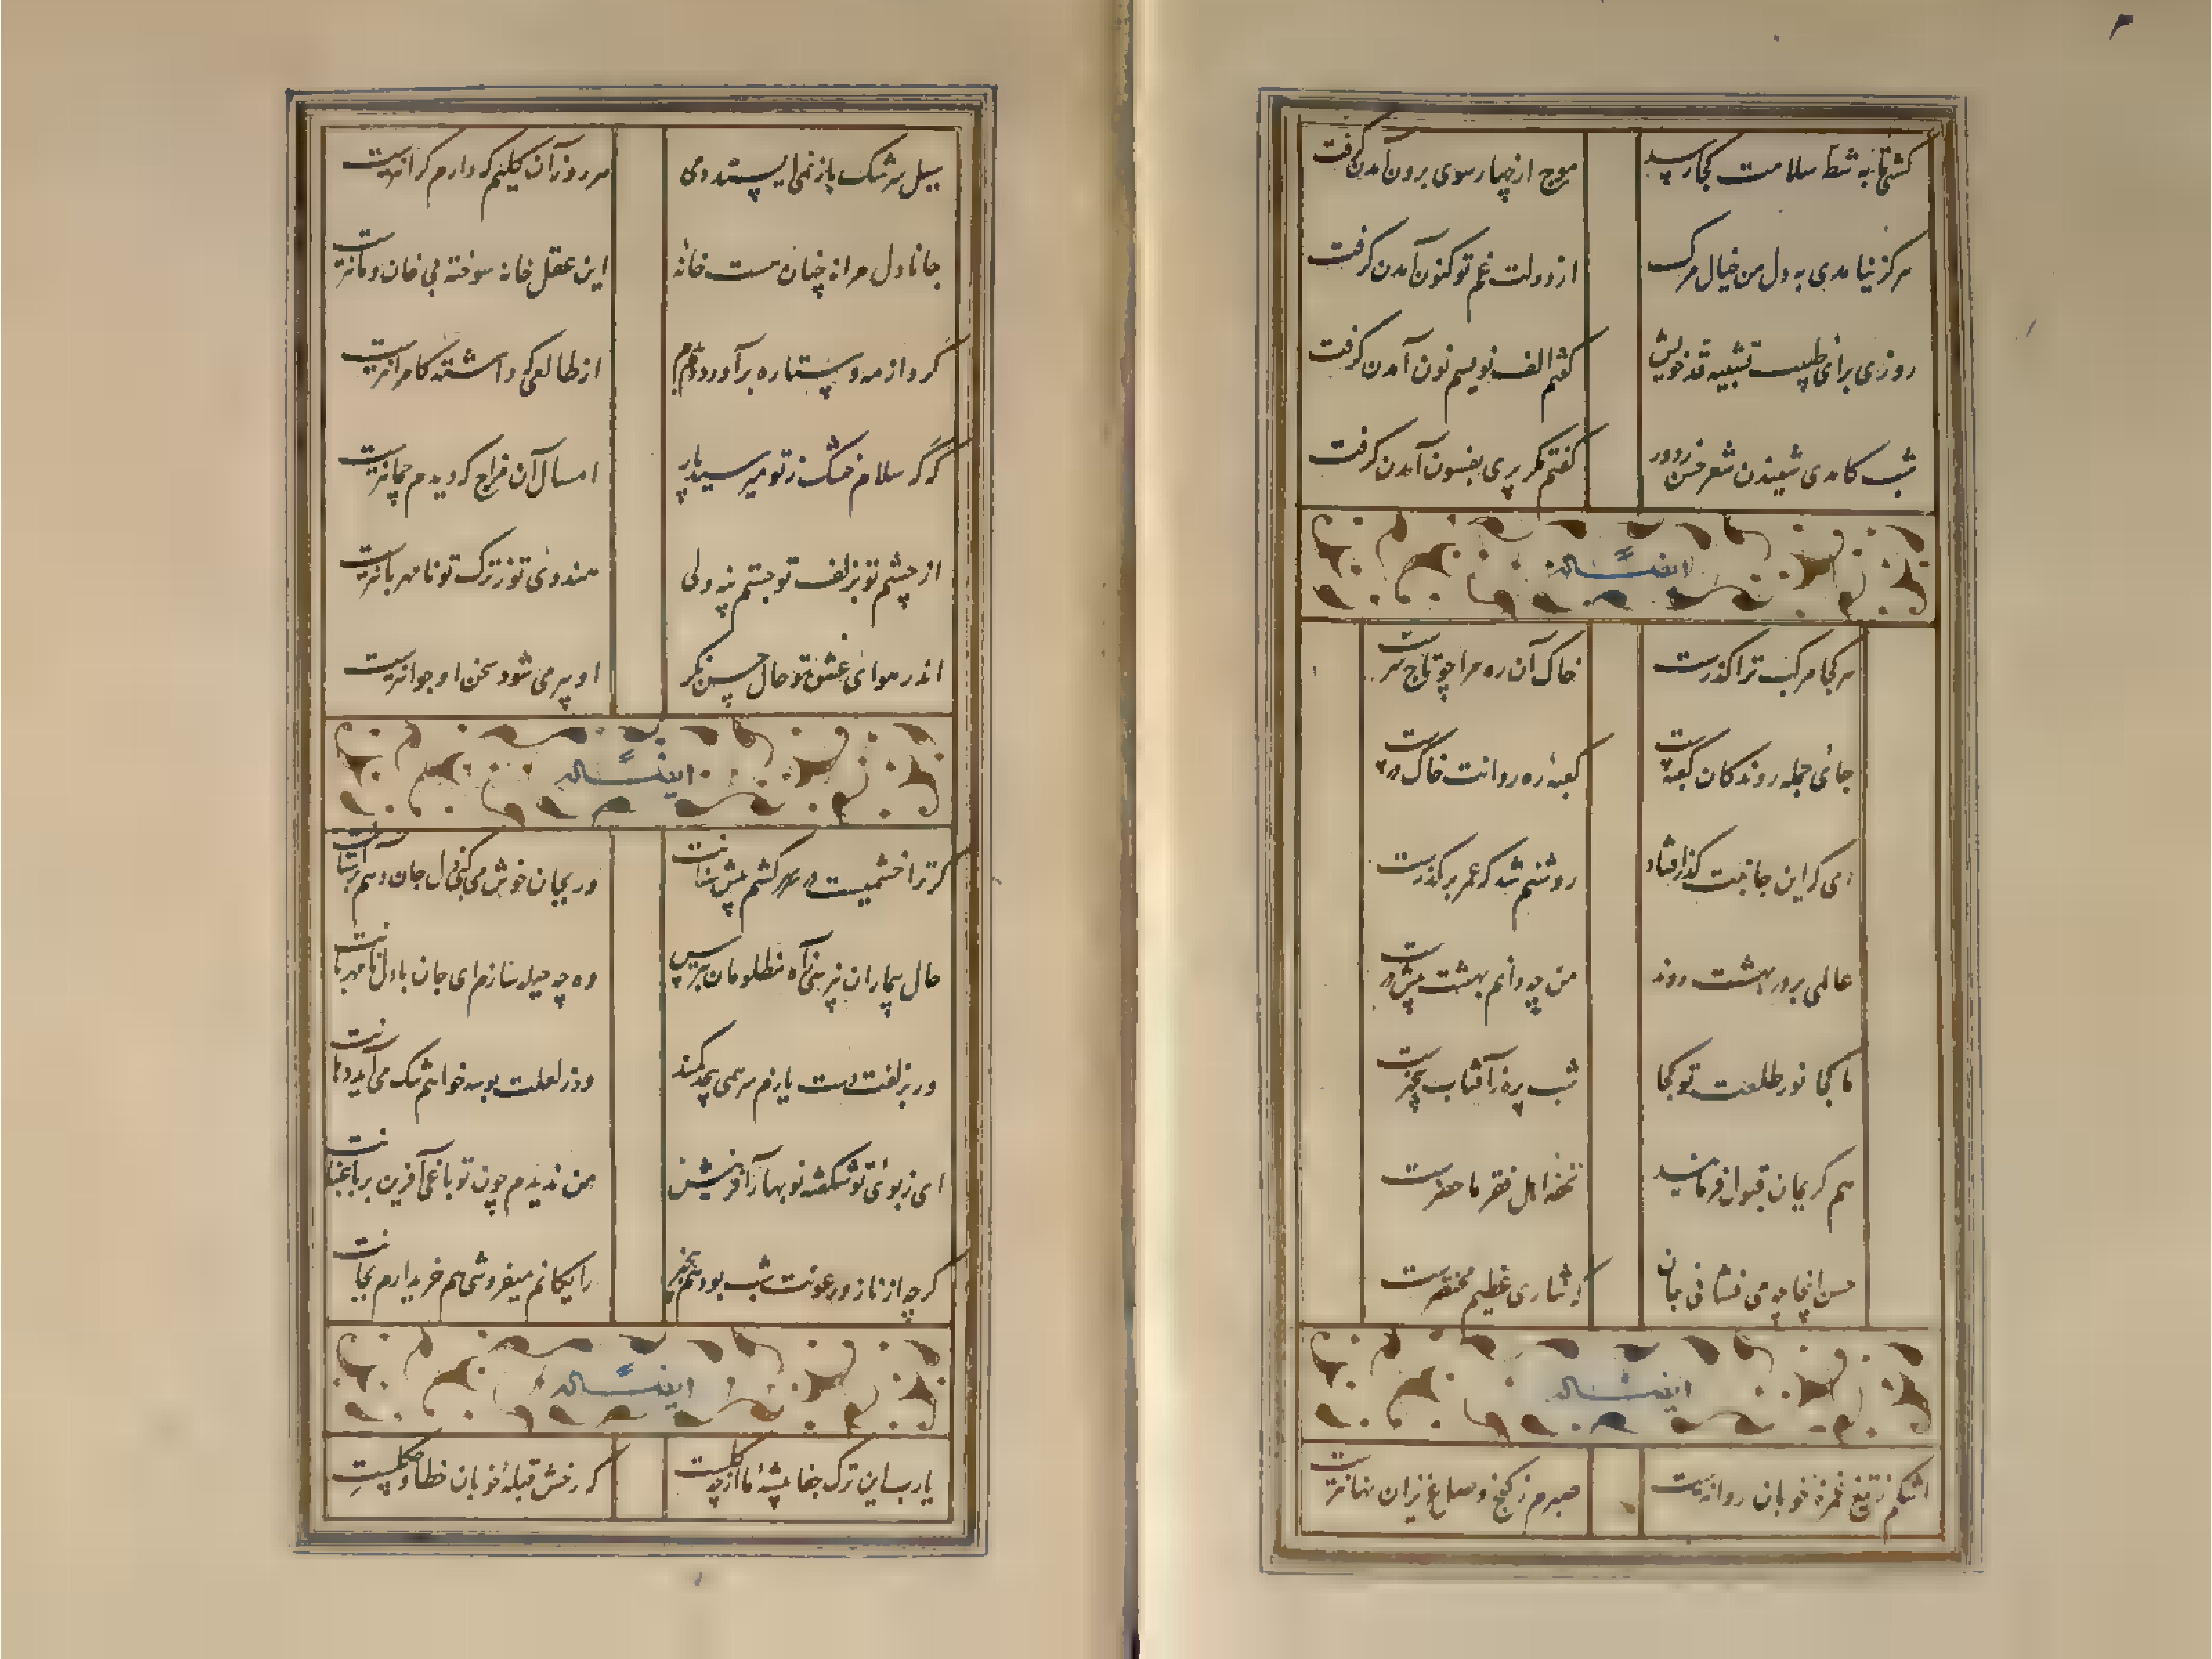 کشتی ما به شط سلامت کجا رسد
موج از چهار سوی برون آمدن گرفت
هرگز نیامدی به دل من خیال مرگ
از دولت غم تو کنون آمدن گرفت
روزی برای طیبت تشبیه قد خویش
گفتم الف نویسم نون آمدن گرفت
شب کامدی شنیدن شعر حسن ز دور
گفتم مگر پری بفسون آمدن گرفت
ایضا له
هر کجا مرکب ترا گذرست
خاک آن ره مرا چو تاج سرست
جای جمله روندگان کعبه است
کعبه ره روانت خاک درست
ای که این جانبت گذر افتاد
روشنم شد که عمر بر گذرست
عالمی بر در بهشت روند
من چه دانم بهشت پیش درست
ما کجا نور طلعت تو کجا
شب پره ز آفتاب بیخبرست
هم کریمان قبول فرمایند
تحفه اهل فقر ما حضرست
حسن اینجا چه می فشانی جان
که نثاری عظیم مختصرست
ایضا له
اشکم ز تیغ غمزه خوبان روانه ایست
صبرم ز کنج وصل عزیزان نهانیست
سیل سرشک باز نمی ایستد دمی
هر روز آن گلیم که دارم گرانیست
جانا دل مرا نه چنان مست خانه
این عقل خانه سوخته بی خان و مانیست
گرد از مه و ستاره برآورد
از طالعی که داشته کامرانیست
گر گه سلام خشک ز تو میرسید پار
امسال آن مزاج که دیدم همانیست
از چشم تو بزلف تو جستم پنه ولی
هندوی تو ز ترک تو نا مهربانیست
اندر هوای عشق تو حال حسن نگر
او پیر می شود سخن او جوانیست
ایضا له
گر ترا خشمیست در سر کشتم پیش سنانت
ور بجان خوش می کنی دل جان دهم بر آستانت
حال بیماران نپرسی ز آه مظلومان نترسی
وه چه حیله سازم ای جان با دل نامهربانت
ور بزلفت دست یازم سر همی پیچد کمند
ور ز لعلت بوسه خواهم تنگ می آید دهانت
ای ز بوی تو شکفته نوبهار آفرینش
من ندیدم چون تو باغی آفرین بر باغبانت
گرچه از ناز و رعونت شب بود
رایگانم میفروشی هم خریدارم بجانت
ایضا له
یارب این ترک جفا پیشه ما از چه گلست
که رخش قبله خوبان خطا و چگلست